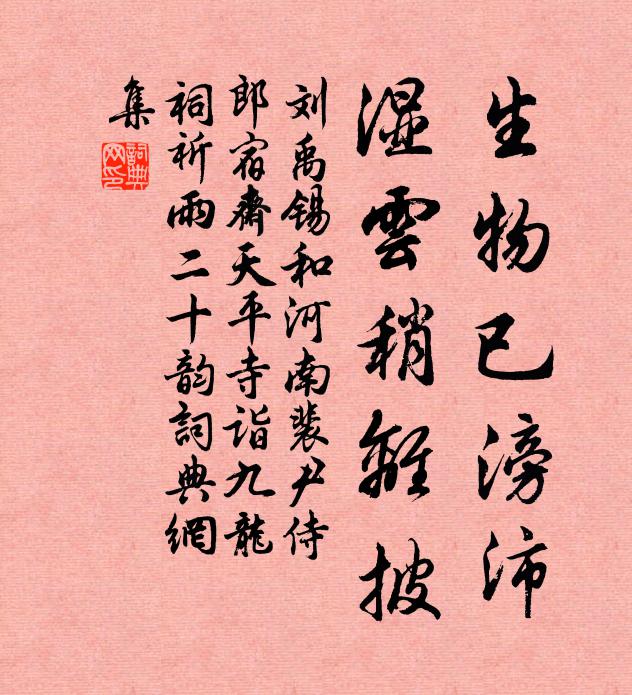 生物已滂沛
湿雲稍離披
刘禹锡和河南裴尹侍
郎宿齋天平寺诣九龍
祠祈雨二十韵詞典網
集
詞典网印